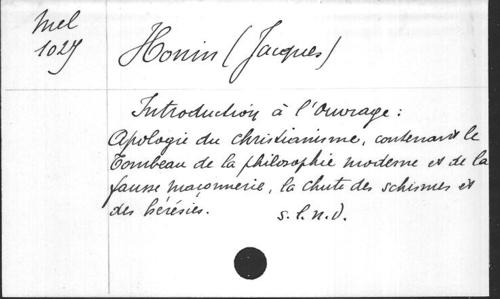 Mel
1027
Honin (Jacques)
Introduction à l'ouvrage :
Apologie du christianisme, contenant le
Tombeau de la philosophie moderne et de la
fausse maçonnerie, la chute des schismes et
des hérésies. s.l.n.d.